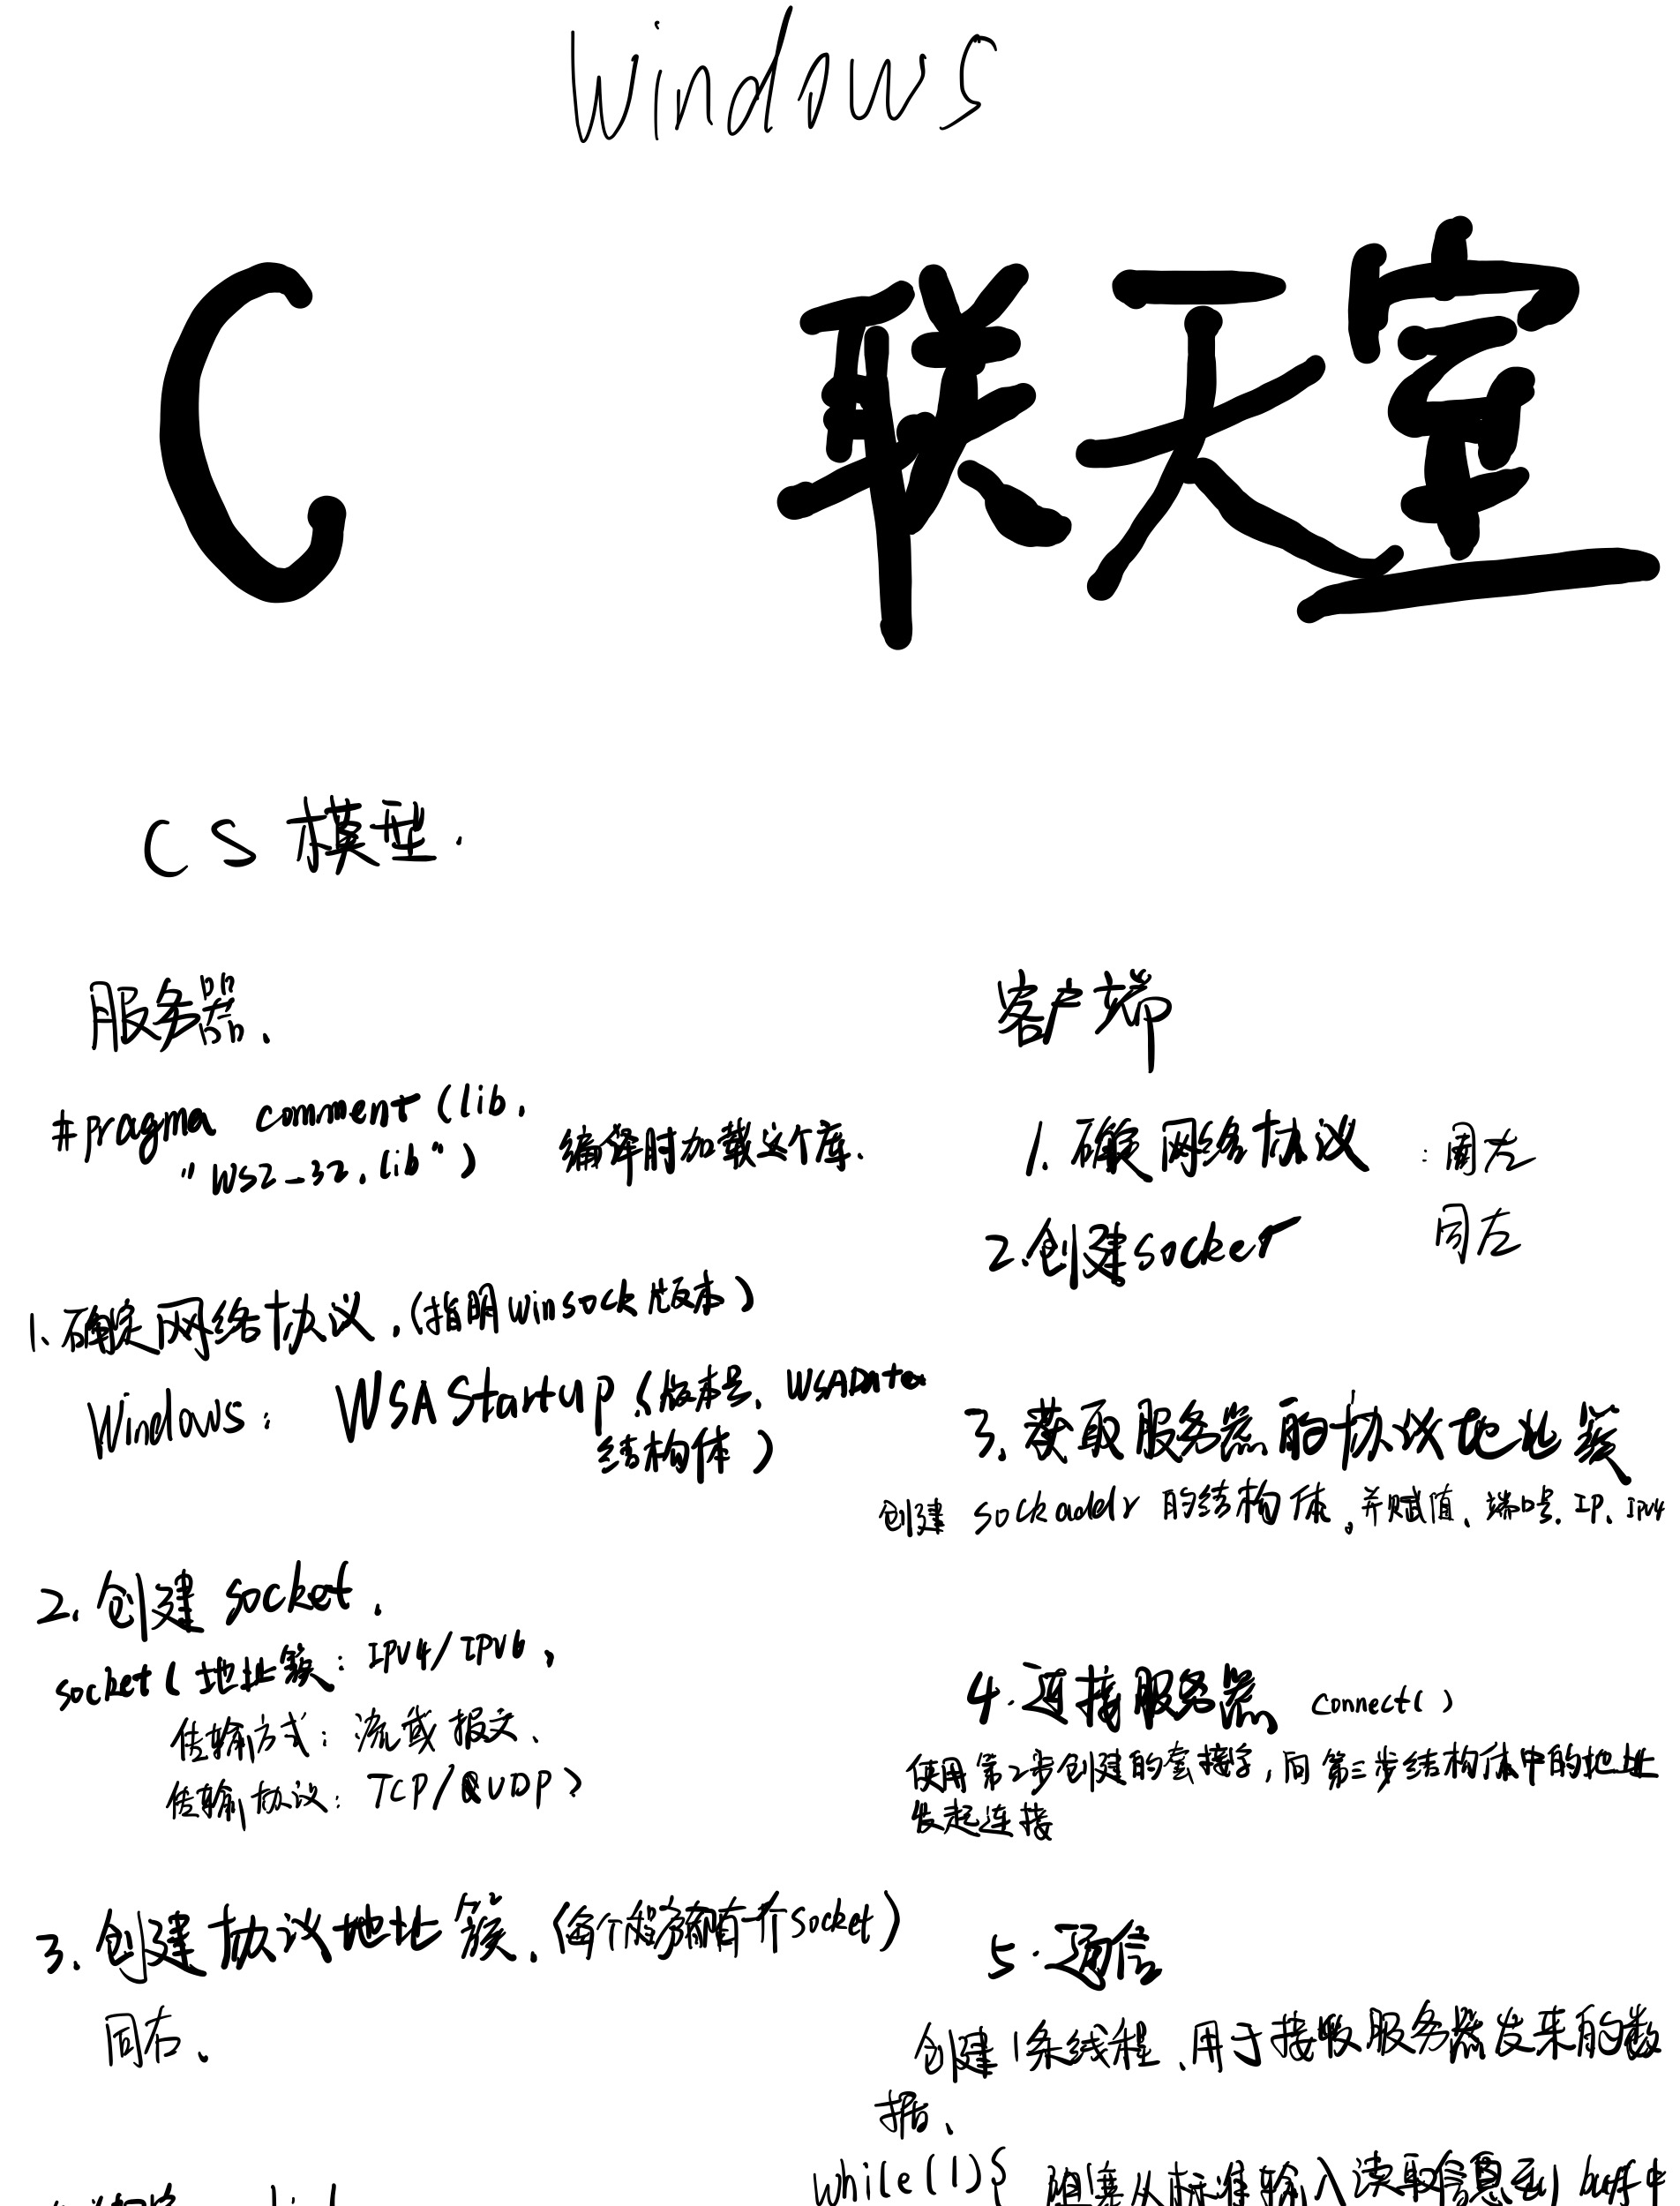 Windows
C 联天室
CS模型.
服务器、
#pragma comment (lib,
"WS2_32.lib")
编译时加载这个库.
1、确定网络协议.(指明winsock版本)
Windows: WSAStartup (版本号、WSAData
结构体)
2. 创建 socket.
socket( 地址簇: IPV4/IPV6、
传输方式: 流或报文、
传输协议: TCP/UDP)
3. 创建协议地址簇.(每个程序都有一个socket)
同右、
客户端
1. 确定网络协议 : 同左
2.创建socket 同左
3. 获取服务器的协议地址簇
创建 sockaddr 的结构体。并赋值、端口号. IP、IPV4
4. 连接服务器 connect()
使用第2步创建的套接字,向第三步结构体中的地址
发起连接
5. 通信
创建1条线程、用于接收服务器发来的数
据、
while(1){ 阻塞从标准输入读取信息到buff中